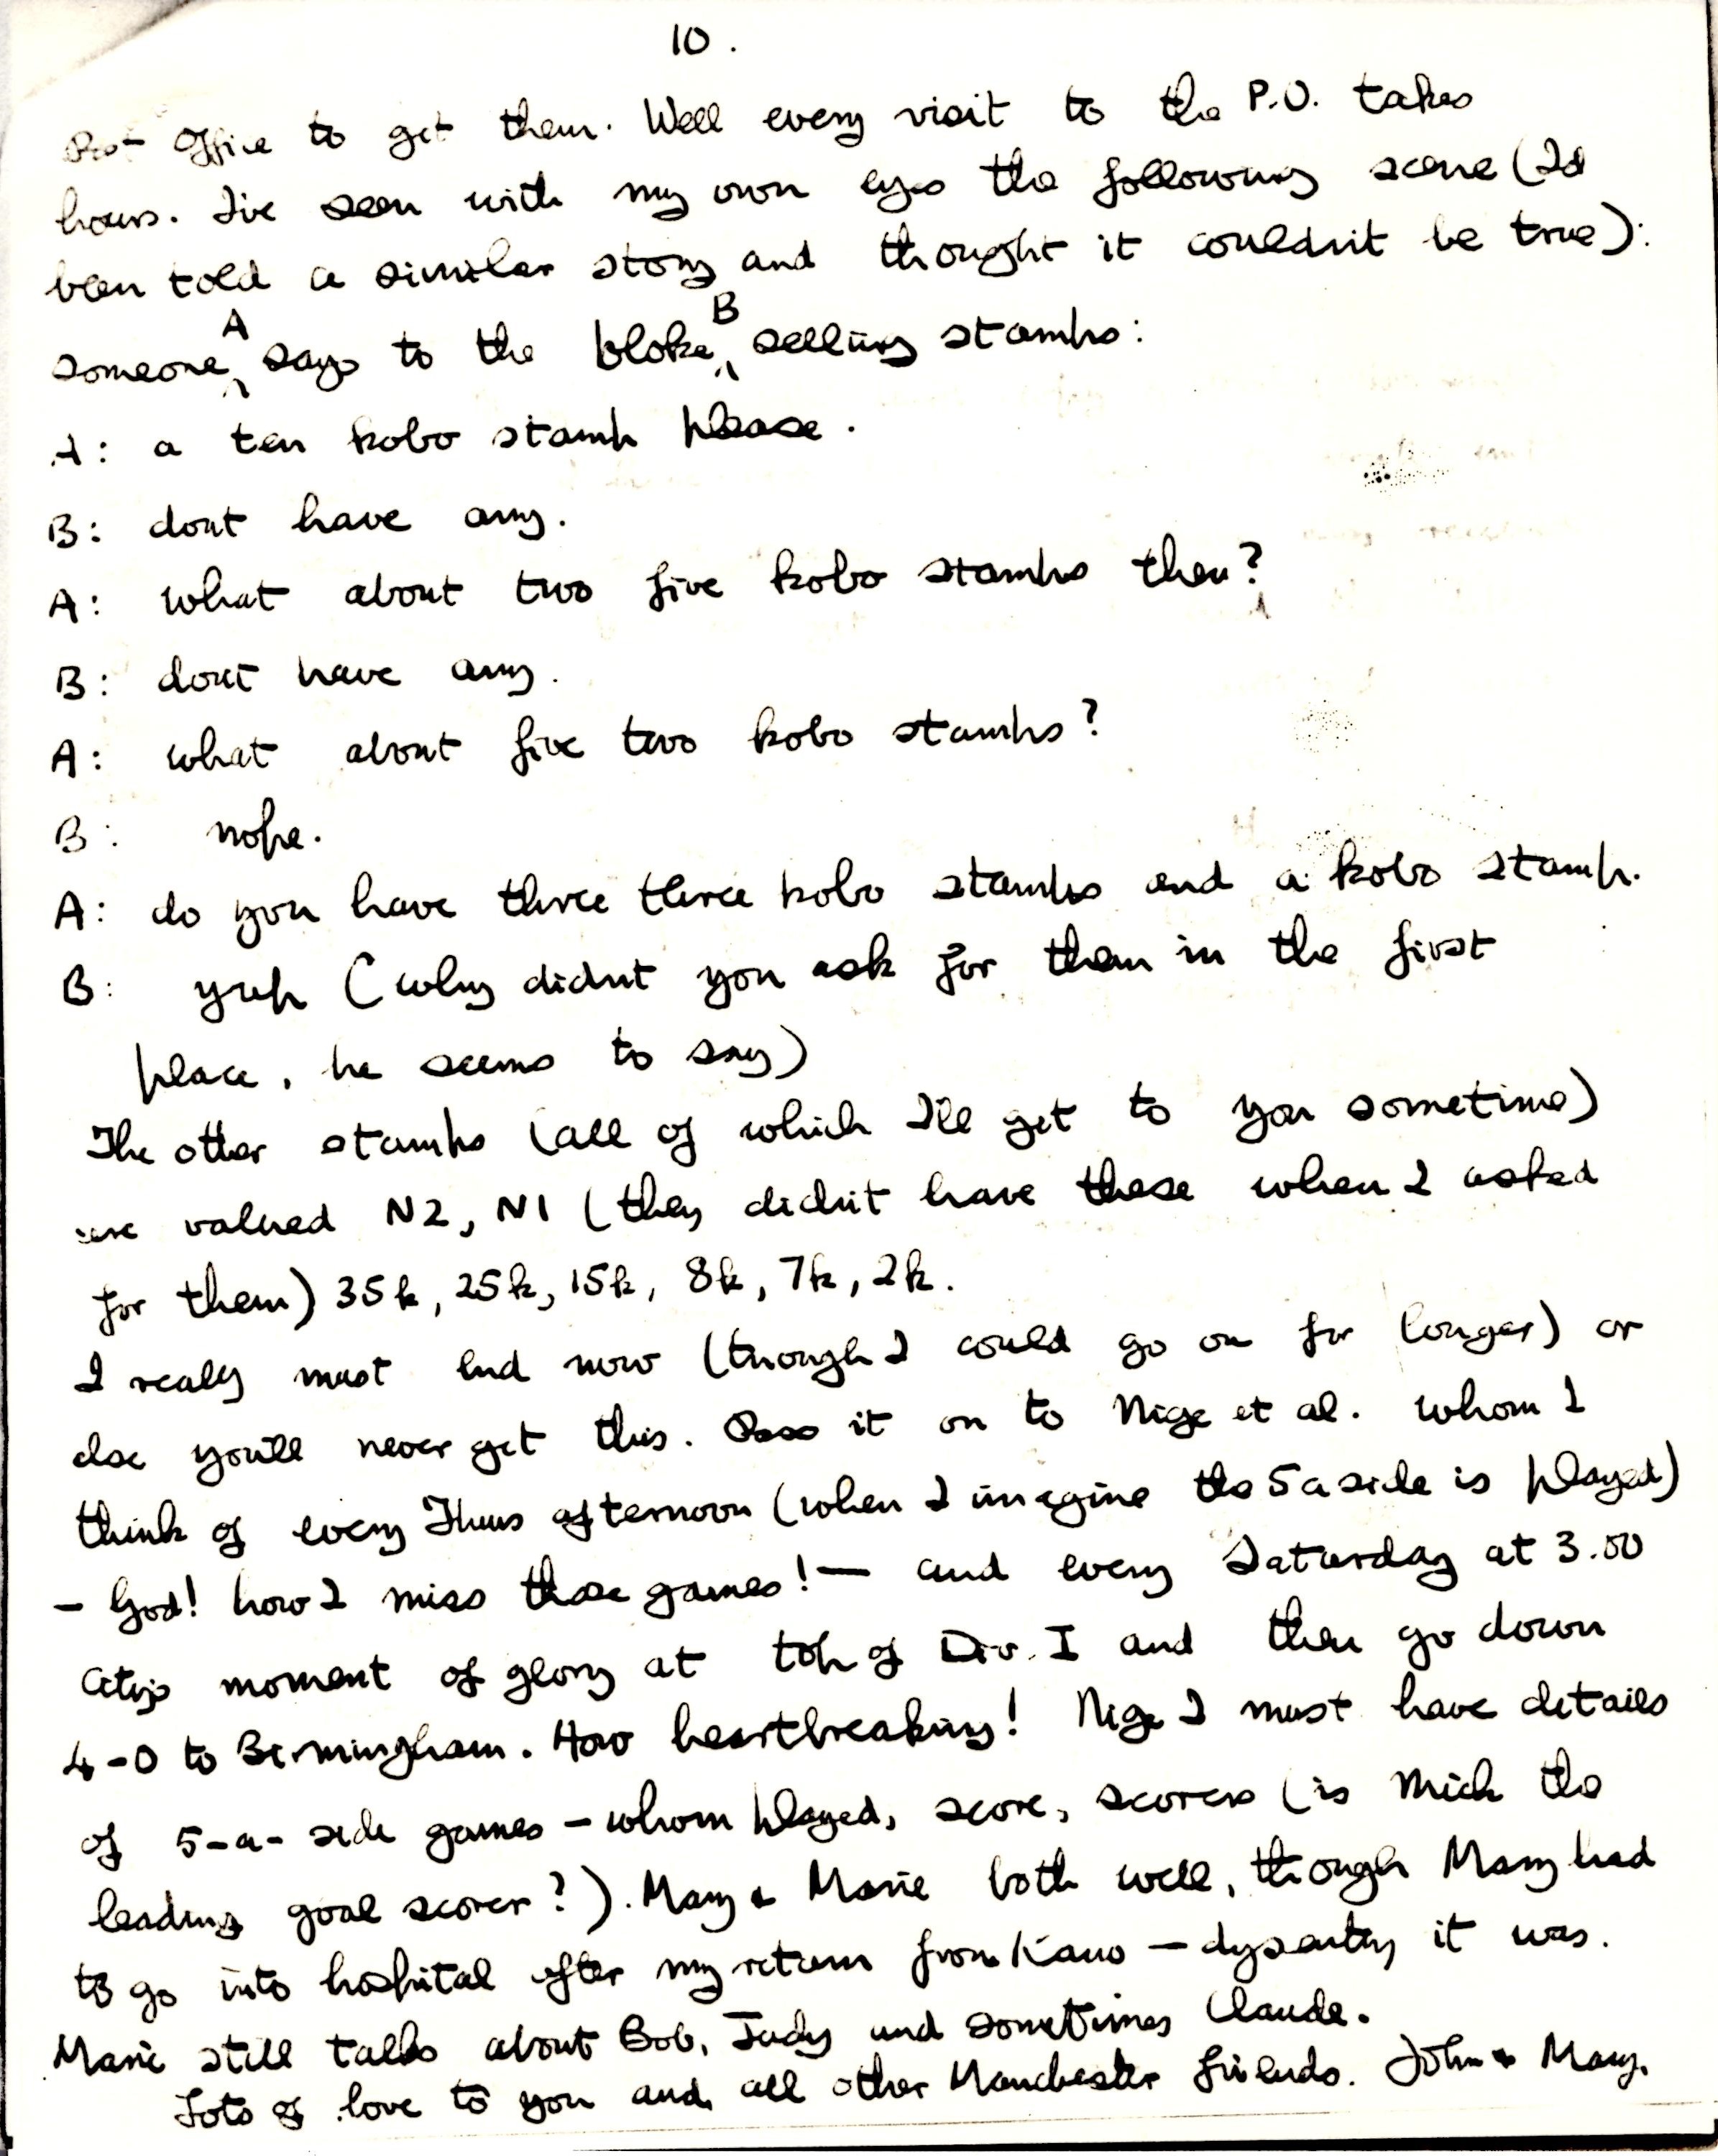 10.
Post Office to get them. Well every visit to the P.O. takes
hours. I've seen with my own eyes the following scene (I'd
been told a similar story and thought it couldn't be true):
someone A says to the bloke B selling stamps:
A: a ten kobo stamp please.
B: dont have any.
A: what about two five kobo stamps then?
B: dont have any.
A: what about five two kobo stamps?
B: nope.
A: do you have three three kobo stamps and a kobo stamp.
B: yup (why didnt you ask for them in the first
place, he seems to say)
The other stamps (all of which I'll get to you sometime)
are valued N2, N1 (they didn't have these when I asked
for them) 35k, 25k, 15k, 8k, 7k, 2k.
I really must end now (though I could go on for longer) or
else you'll never get this. Pass it on to Nige et al. whom I
think of every Thurs afternoon (when I imagine the 5 a side is played)
- God! how I miss those games! — and every Saturday at 3.00
City's moment of glory at top of Div. I and then go down
4-0 to Birmingham. How heartbreaking! Nige I must have details
of 5-a-side games - whom played, score, scorers (is Mick the
leading goal scorer?). Mary & Marie both well, though Mary had
to go into hospital after my return from Kano - dysentry it was.
Marie still talks about Bob, Judy and sometimes Claude.
Lots of love to you and all other Manchester friends. John & Mary.